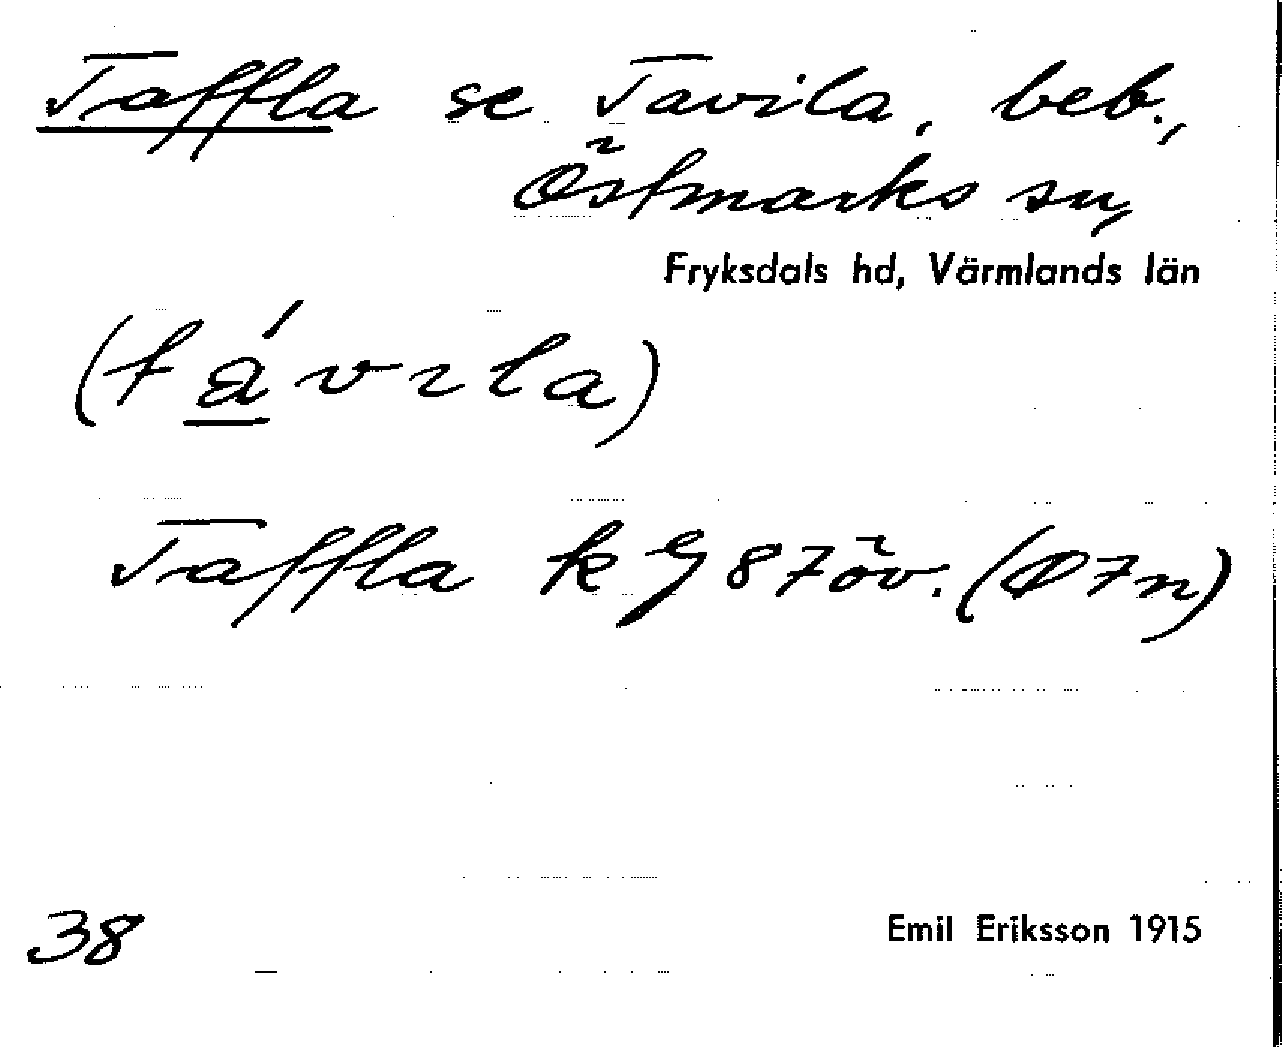 Taffla se Tavila, beb.,
Östmarks sn,
Fryksdals hd, Värmlands län
(távıla)
Taffla k 987 öv. (Ö7n)
38
Emil Eriksson 1915